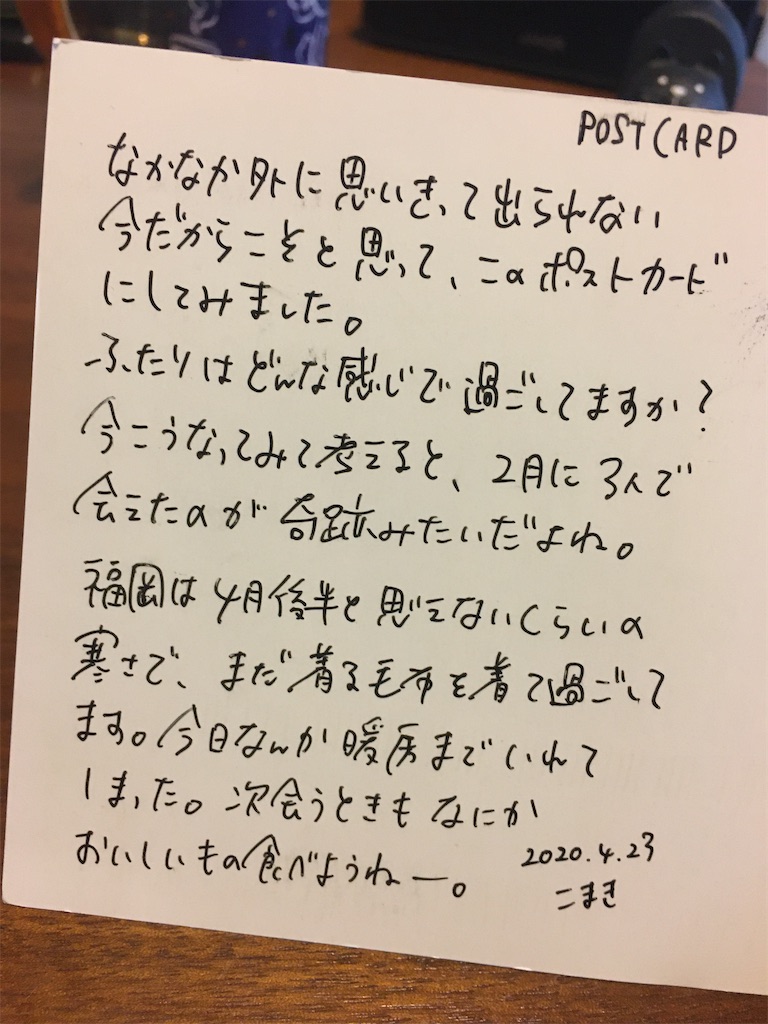 POSTCARD
なかなか外に思いきって出られない
今だからこそと思って、このポストカード
にしてみました。
ふたりはどんな感じで過ごしてますか?
今こうなってみて考えると、2月に3人で
会えたのが奇跡みたいだよね。
福岡は4月後半と思えないくらいの
寒さで、まだ着る毛布を着て過ごして
ます。今日なんか暖房までいれて
しまった。次会うときもなにか
おいしいもの食べようねー。
2020.4.23
こまき